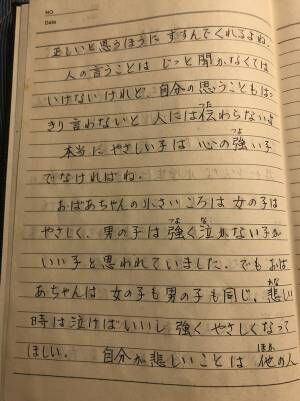 NO.
Date
正しいと思うほうに すすんでくれるよね。
人の言うことは じっと聞かなくては
いけないけれど、自分の思うこともはっ
きり言わないと 人には伝わらないよ
本当に やさしい子は 心の強い子
でなければね。
おばあちゃんの小さいころは 女の子は
やさしく、男の子は 強く泣かない子が
いい子と思われていました。でもおば
あちゃんは 女の子も男の子も同じ、悲しい
時は泣けばいいし 強く やさしくなって
ほしい。 自分が悲しいことは 他の人